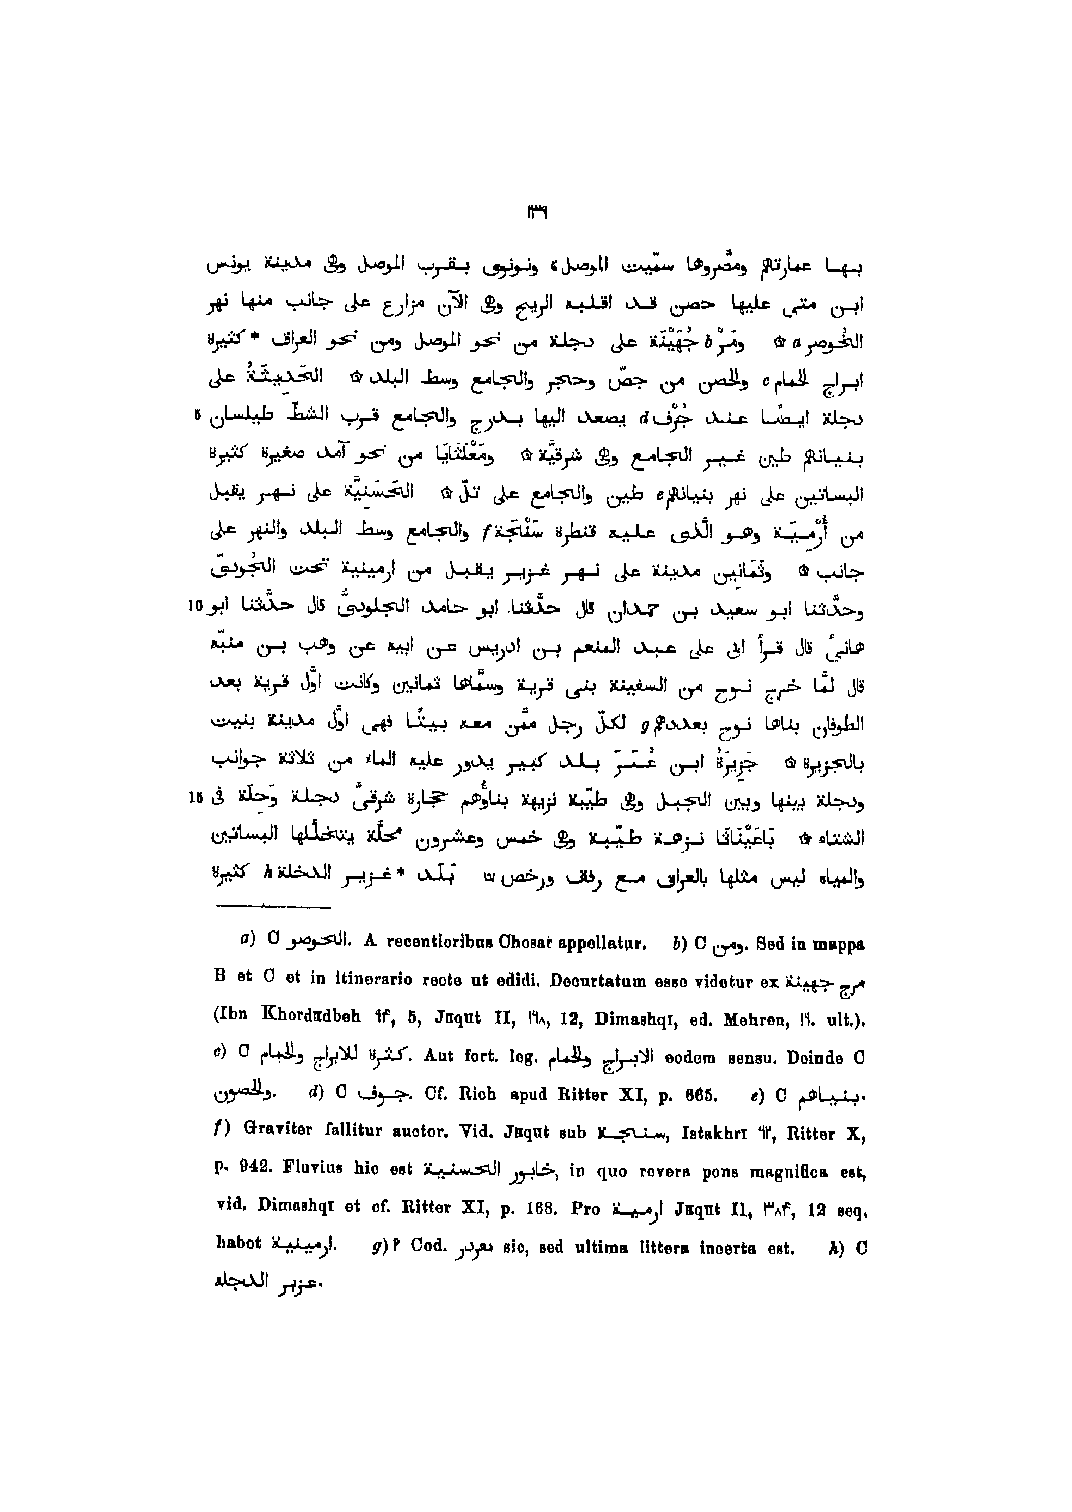 ١٣٩
بها عمارتهم ومصّروها سمّيت الموصل، ونونوى بقرب الموصل وفى مدينة يونس
ابن متى عليها حصن قد اقلبه الريح وفى الآن مزارع على جانب منها نهر
الخُوصر a ۞ ومَرْ b جُهَيْنَة على دجلة من نحو الموصل ومن نحو العراق * كثيرة
ابراج الحمام c والحصن من جصّ وحجر والجامع وسط البلد ۞ الحَديثَة على
دجلة ايضًا عند جُرُف d يصعد اليها بدرج والجامع قرب الشطّ طيلسان 5
بنيانهم طين غير الجامع وفى شرقيّة ۞ ومَعْلَثَايَا من نحو آمد صغيرة كثيرة
البساتين على نهر بنيانهم e طين والجامع على تلّ ۞ الحَسَنيَّة على نهر يقبل
من أُرْمِيَّة وهو الّذى عليه قنطرة سَنْجَة f والجامع وسط البلد والنهر على
جانب ۞ وثَمَانِين مدينة على نهر غزير يقبل من ارمينية تحت الجُودىّ
وحدَّثنا ابو سعيد بن حمدان قال حدَّثنا ابو حامد الجلودىُّ قال حدَّثنا ابو 10
هانئ قال قرأ ابى على عبد المنعم بن ادريس عن ابيه عن وهب بن منبّه
قال لمّا خرج نوح من السفينة بنى قرية وسمَّاها ثمانين وكانت اوَّل قرية بعد
الطوفان بناها نوح بعددهم g لكلّ رجل ممَّن معه بيتًا فهى اوَّل مدينة بنيت
بالجزيرة ۞ جَزِيرَةُ ابن عُمَرَ بلد كبير يدور عليه الماء من ثلاثة جوانب
ودجلة بينها وبين الجبل وفى طيّبة نزيهة بناؤهم حجارة شرقىُّ دجلة وَحِلَة فى 15
الشتاء ۞ بَاعَيْنَاثَا نزهة طيّبة وفى خمس وعشرون محلّة يتخلّلها البساتين
والمياه ليس مثلها بالعراق مع رفق ورخص ۞ بَلَد * غزير الدخلة h كثيرة
a) C الحوصر. A recentioribus Chosar appellatur. b) C ومن. Sed in mappa
B et C et in itinerario recte ut edidi. Decurtatum esse videtur ex مرج جهينة
(Ibn Khordadbeh ٩٤, 5, Jaqut II, ١٦٨, 12, Dimashqi, ed. Mehren, ١٩٠ ult.).
c) C كثيرة للابراج والحمام. Aut fort. leg. الابراج والحمام eodem sensu. Deinde C
والحصون. d) C جوف. Cf. Rich apud Ritter XI, p. 665. e) C بنياهم.
f) Graviter fallitur auctor. Vid. Jaqut sub سنجة, Istakhri ٦٢, Ritter X,
p. 942. Fluvius hic est خابور الحسنية, in quo revera pons magnifica est,
vid. Dimashqi et cf. Ritter XI, p. 168. Pro ارمية Jaqut II, ٣٨٤, 12 seq.
habet ارمينية. g) ? Cod. بعدد sic, sed ultima littera incerta est. h) C
عزير الدجله.